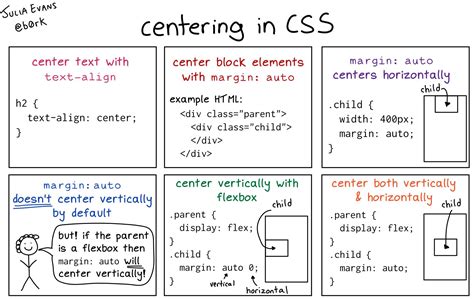 JULIA EVANS
@b0rk
centering in CSS
center text with
text-align
h2 {
text-align: center;
}
center block elements
with margin: auto
example HTML:
<div class="parent">
<div class="child">
</div>
</div>
margin: auto
centers horizontally
child
.child {
width: 400px;
margin: auto;
}
margin: auto
doesn't center vertically
by default
but! if the parent
is a flexbox then
margin: auto will
center vertically!
center vertically with
flexbox
child
.parent {
display: flex;
}
.child {
margin: auto 0;
}
vertical
horizontal
center both vertically
& horizontally
child
.parent {
display: flex;
}
.child {
margin: auto;
}